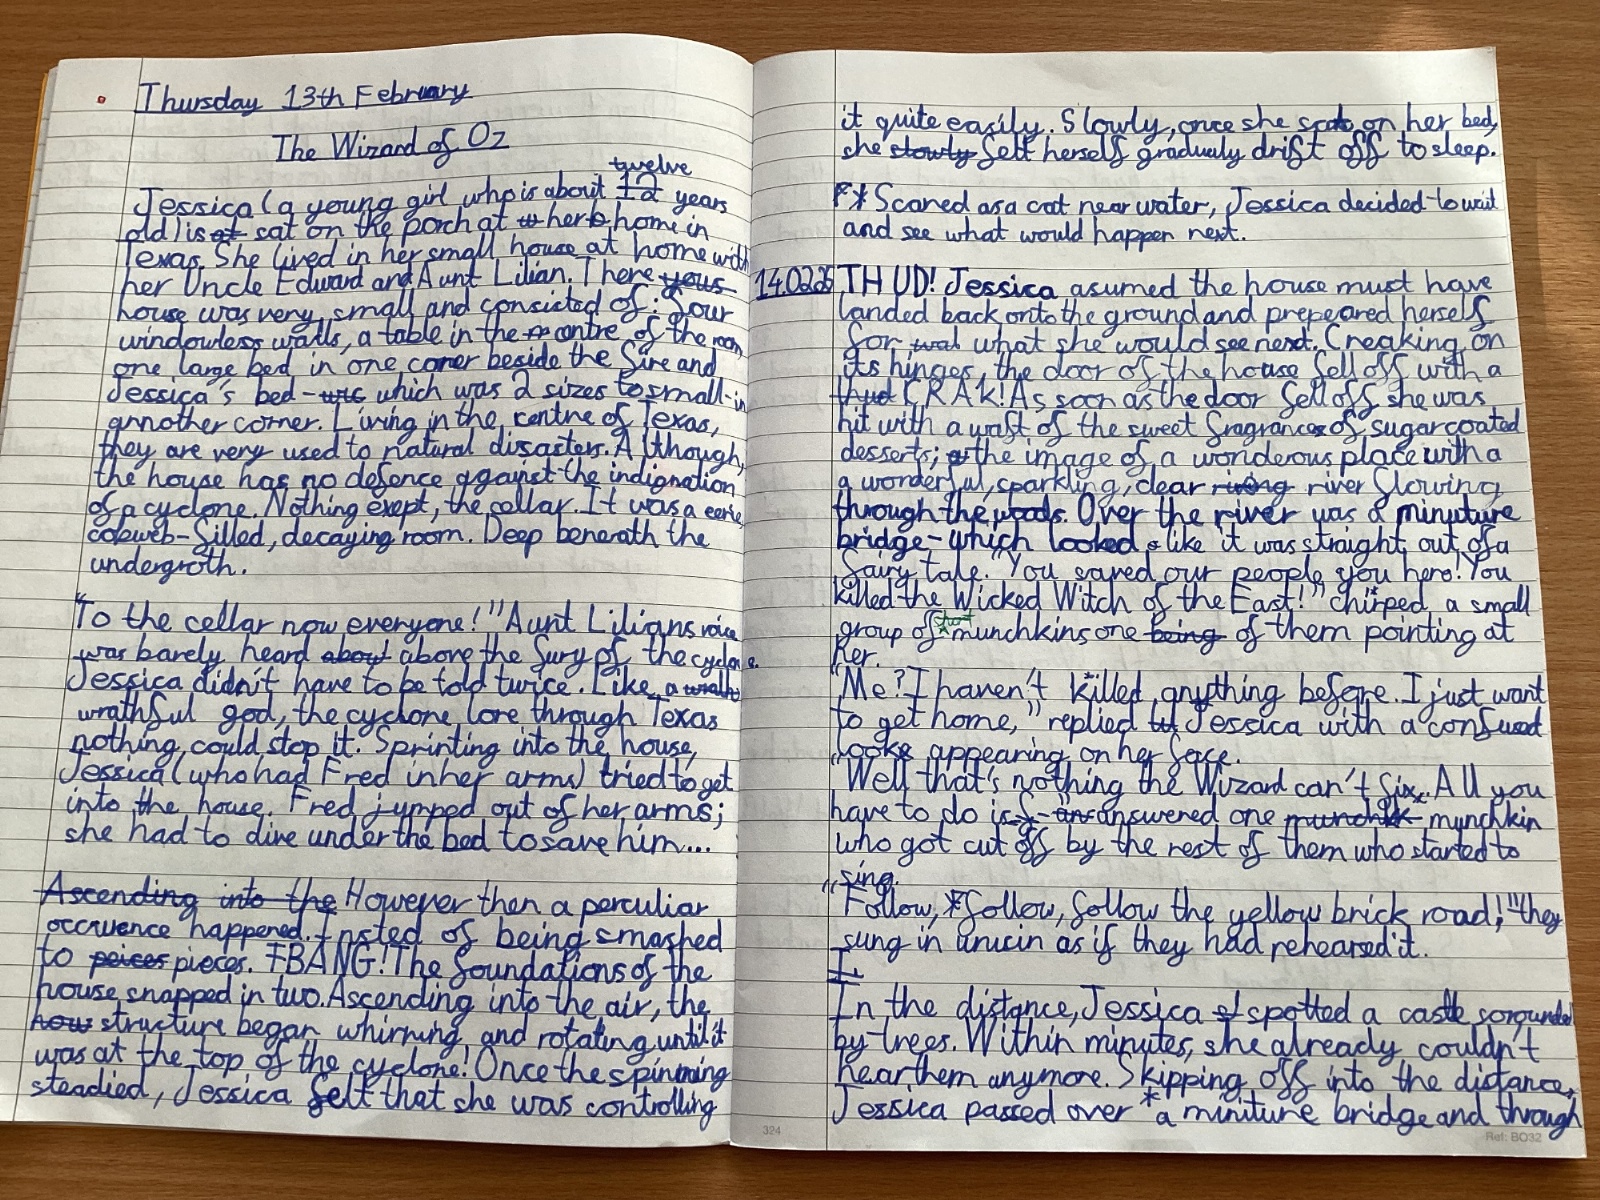 Thursday 13th February
The Wizard of Oz
twelve
Jessica (a young girl who is about 12 years
old) is at sat on the porch at her home in
Texas. She lived in her small house at home with
her Uncle Edward and Aunt Lilian. There
house was very, small and consicted of: four
windowless walls, a table in the centre of the room
one large bed in one corner beside the fire and
Jessica's bed - which was 2 sizes to small - in
annother corner. Living in the centre of Texas,
they are very used to natural disasters. Although,
the house has no defence against the indignation
of a cyclone. Nothing exept, the cellar. It was a eerie,
cobweb-filled, decaying room. Deep beneath the
undergroth.
"To the cellar now everyone!" Aunt Lilians voice
was barely heard about above the fury of the cyclone.
Jessica didn't have to be told twice. Like a wrath
wrathful god, the cyclone tore through Texas
nothing could stop it. Sprinting into the house,
Jessica (who had Fred in her arms) tried to get
into the house. Fred jumped out of her arms;
she had to dive under the bed to save him...
Ascending into the However then a perculiar
occurence happened. Insted of being smashed
to peices pieces. BANG! The foundations of the
house snapped in two. Ascending into the air, the
how structure began whirring and rotating until it
was at the top of the cyclone! Once the spinning
steadied, Jessica felt that she was controlling
324
it quite easily. Slowly, once she sat on her bed,
she slowly felt herself gradualy drift off to sleep.
* Scared as a cat near water, Jessica decided to wait
and see what would happen next.
14.02.25 THUD! Jessica asumed the house must have
landed back onto the ground and prepeared herself
for what she would see next. Creaking on
its hinges, the door of the house fell off with a
thud CRAK! As soon as the door fell off she was
hit with a waft of the sweet fragrances of sugarcoated
desserts; the image of a wonderous place with a
a wonderful, sparkling, clear river flowing
through the woods. Over the river was a minuture
bridge - which looked like it was straight out of a
fairy tale. "You saved our people you hero! You
killed the Wicked Witch of the East!" chirped a small
group of short munchkins one being of them pointing at
her.
"Me? I haven't killed anything before. I just want
to get home," replied Jessica with a confused
looks appearing on her face.
"Well that's nothing the Wizard can't fix. All you
have to do is -" answered one munchk munchkin
who got cut off by the rest of them who started to
sing.
"Follow, follow, follow the yellow brick road," they
sung in unicin as if they had rehearsed it.
I
In the distance, Jessica spotted a castle sorounded
by trees. Within minutes, she already couldn't
hear them anymore. Skipping off into the distance,
Jessica passed over * a miniture bridge and through
Ref: BO32